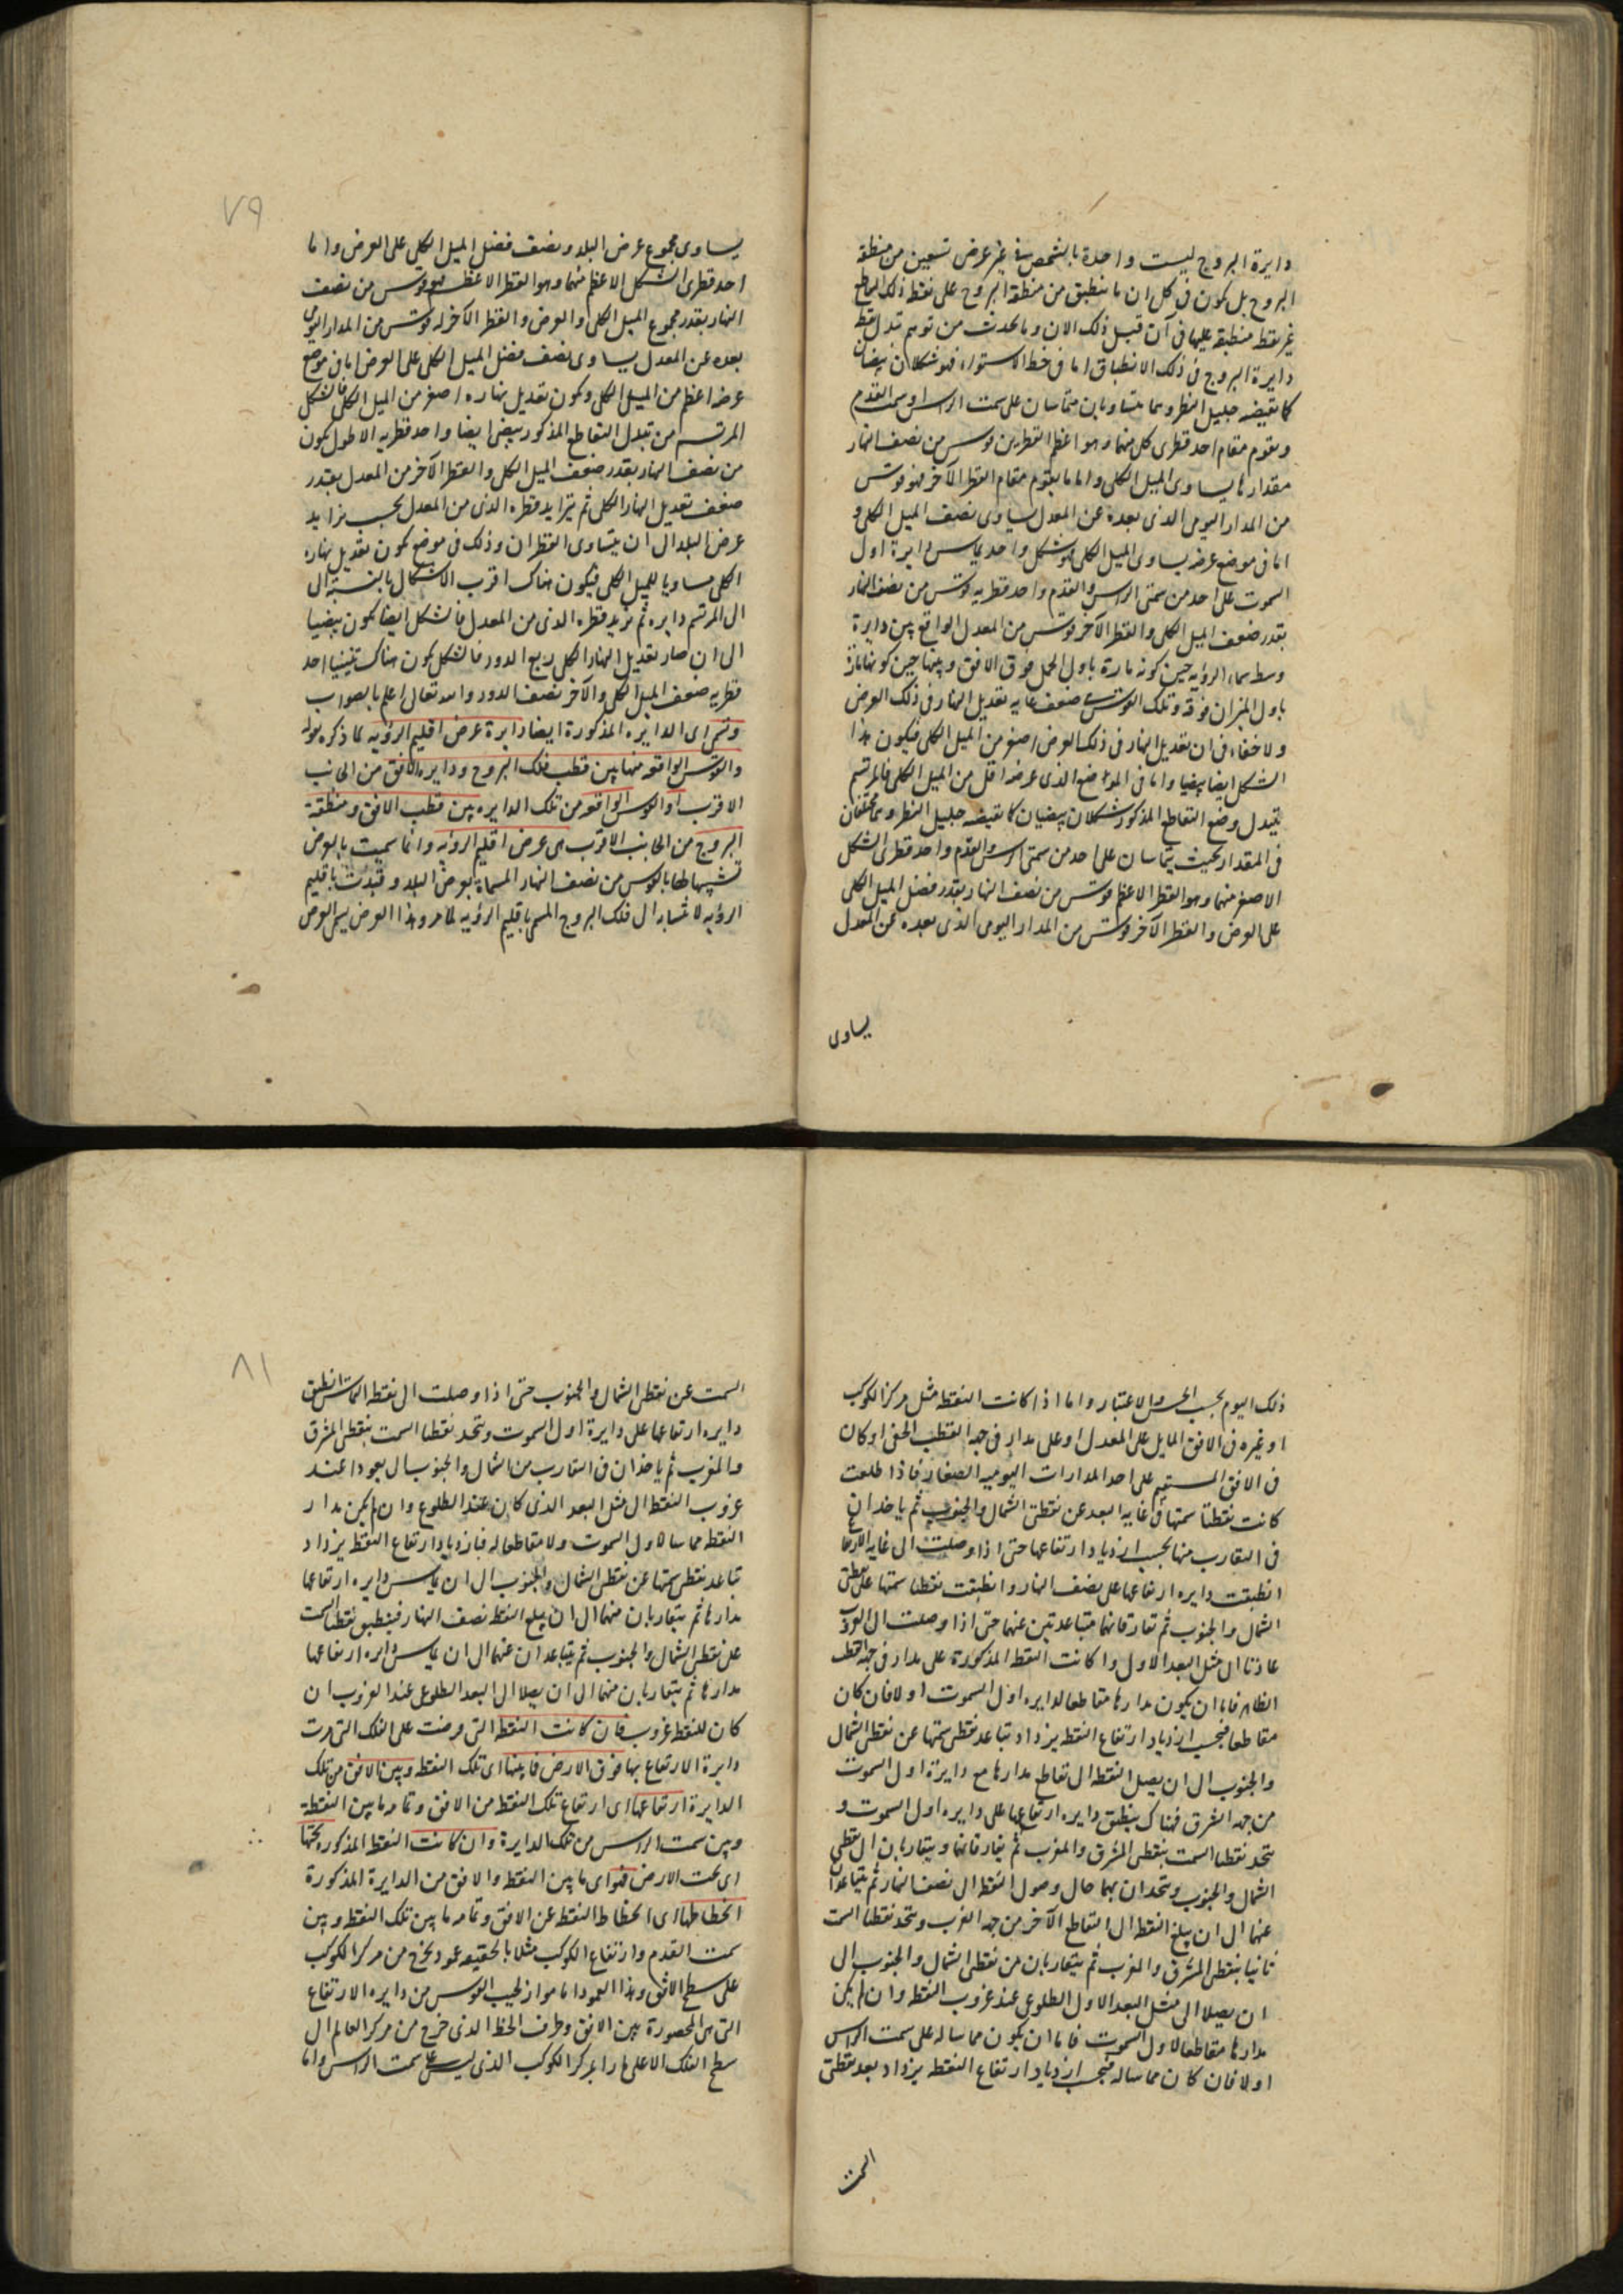 دايرة البروج ليست واحدة بالشخص في غير عرض تسعين من منطقة
البروج بل يكون في كل ان ما ينطبق من منطقة البروج على نقط ذلك
غير نقط منطبقة عليها في آن قبل ذلك الان وما يحدث من توهم تبدل نقط
دايرة البروج في ذلك الانطباق اما في خط الاستواء فهو شكلان بيضيان
كما يقتضيه جليل النظر وهما متساويان متماسان على سمت الراس او سمت القدم
ويقوم مقام احد قطري كل منهما وهو اعظم القطرين قوس من نصف النهار
مقدارها يساوى الميل الكلى واما ما يقوم مقام القطر الآخر فهو قوس
من المدار اليومى الذى بعده عن المعدل يساوى نصف الميل الكلى و
اما في موضع عرضه يساوى الميل الكلى فهو شكل واحد يماس دايرة اول
السموت على احد من سمتى الراس والقدم واحد قطريه قوس من نصف النهار
بقدر ضعف الميل الكلى والقطر الآخر قوس من المعدل الواقع بين دايرة
وسط سماء الرؤية حين كونه مارة باول الحمل فوق الافق وبينها حين كونها مارة
باول الميزان فوقه وتلك القوس ضعف غاية تعديل النهار في ذلك العرض
ولا خفاء في ان تعديل النهار في ذلك العرض اصغر من الميل الكلى فيكون هذا
الشكل ايضا بيضيا واما في المواضع الذى عرضه اقل من الميل الكلى فالمرتسم
بتبدل وضع التقاطع المذكور شكلان بيضيان كما يقتضيه جليل النظر وهما مختلفان
في المقدار بحيث يتماسان على احد من سمتى الراس والقدم واحد قطرى الشكل
الاصغر منهما وهو القطر الاعظم قوس من نصف النهار بقدر فضل الميل الكلى
على العرض والقطر الآخر قوس من المدار اليومى الذى بعده عن المعدل
يساوى
٧٩
يساوى مجموع عرض البلد ونصف فضل الميل الكلى على العرض واما
احد قطرى الشكل الاعظم منهما وهو القطر الاعظم فهو قوس من نصف
النهار بقدر مجموع الميل الكلى والعرض والقطر الآخر له قوس من المدار اليومى
بعده عن المعدل يساوى نصف فضل الميل الكلى على العرض اما في موضع
عرضه اعظم من الميل الكلى ويكون تعديل نهاره اصغر من الميل الكلى فالشكل
المرتسم من تبدل التقاطع المذكور بيضى ايضا واحد قطريه الاطول يكون
من نصف النهار بقدر ضعف الميل الكلى والقطر الآخر من المعدل بقدر
ضعف تعديل النهار الكلى ثم يتزايد قطره الذى من المعدل بحسب تزايد
عرض البلد الى ان يتساوى القطران وذلك في موضع يكون تعديل نهاره
الكلى مساويا للميل الكلى فيكون هناك اقرب الاشكال بالنسبة الى
الى المرتسم دايره ثم يزيد قطره الذى من المعدل فالشكل ايضا يكون بيضيا
الى ان صار تعديل النهار الكلى ربع الدور فالشكل يكون هناك احد
قطريه ضعف الميل الكلى والآخر نصف الدور والله تعالى اعلم بالصواب
وتسمى اى الدايره المذكورة ايضا دايرة عرض اقليم الرؤيه لما ذكره بقوله
والقوس الواقعه منها بين قطب فلك البروج ودايره الافق من الجانب
الاقرب او القوس الواقعه من تلك الدايره بين قطب الافق ومنطقة
البروج من الجانب الاقرب هى عرض اقليم الرؤيه وانما سميت بالعرض
تشبيها لها بالقوس من نصف النهار المسماة بعرض البلد وقيدت باقليم
الرؤيه لانتسابه الى فلك البروج المسمى باقليم الرؤيه لما مر وهذا العرض يسمى العرض
ذلك اليوم بحسب الحس والاعتبار واما اذا كانت النقطه مثل مركز الكوكب
او غيره في الافق المايل على المعدل او على مدار في جهة القطب الخفى او كان
في الافق المستقيم على احد المدارات اليوميه الصغار فاذا طلعت
كانت نقطتا سمتها في غاية البعد عن نقطتى الشمال والجنوب ثم ياخذان
في التقارب منها بحسب ازدياد ارتفاعها حتى اذا وصلت الى غاية الارتفاع
انطبقت دايره ارتفاعها على نصف النهار وانطبقت نقطتا سمتها على نقطتى
الشمال والجنوب ثم تفارقانهما متباعدتين عنهما حتى اذا وصلت الى الغروب
عادتا الى مثل البعد الاول واذا كانت النقطة المذكورة على مدار في جهة القطب
الظاهر فاما ان يكون مدارها مقاطعا لدايره اول السموت او لا فان كان
مقاطعا فبحسب ازدياد ارتفاع النقطه يزداد تباعد نقطتى سمتها عن نقطتى الشمال
والجنوب الى ان يصل النقطه الى تقاطع مدارها مع دايرة اول السموت
من جهه الشرق فهناك ينطبق دايره ارتفاعها على دايره اول السموت و
يتحد نقطتا السمت بنقطتى المشرق والمغرب ثم يفارقانهما ويتقاربان الى نقطتى
الشمال والجنوب ويتحدان بهما حال وصول النقطه الى نصف النهار ثم يتباعدان
عنهما الى ان يبلغ النقطه الى التقاطع الآخر من جهه الغرب ويتحد نقطتا السمت
ثانيا بنقطتى المشرق والمغرب ثم يتقاربان من نقطتى الشمال والجنوب الى
ان يصلا الى مثل البعد الاول الطلوعى عند غروب النقطه وان لم يكن
مدارها مقاطعا لاول السموت فاما ان يكون مماسا له على سمت الراس
او لا فان كان مماسا له فبحسب ازدياد ارتفاع النقطه يزداد بعد نقطتى
السمت
٨١
السمت عن نقطتى الشمال والجنوب حتى اذا وصلت الى نقطه التماس انطبق
دايره ارتفاعها على دايرة اول السموت ويتحد نقطتا السمت بنقطتى المشرق
والمغرب ثم ياخذان في التقارب من الشمال والجنوب الى يعودا عند
غروب النقطه الى مثل البعد الذى كان عند الطلوع وان لم يكن مدار
النقطه مماسا لاول السموت ولا مقاطعا له فبازدياد ارتفاع النقطه يزداد
تباعد نقطتى سمتها عن نقطتى الشمال والجنوب الى ان يماس دايره ارتفاعها
مدارها ثم يتقاربان منهما الى ان يبلغ النقطه نصف النهار فينطبق نقطتا السمت
على نقطتى الشمال والجنوب ثم يتباعدان عنهما الى ان يماس دايره ارتفاعها
مدارها ثم يتقاربان منهما الى ان يصلا الى البعد الطلوعى عند الغروب ان
كان للنقطه غروب فان كانت النقطه التى فرضت على الفلك التى مرت
دايرة الارتفاع بها فوق الارض فما بينها اى تلك النقطه وبين الافق من تلك
الدايرة ارتفاعها اى ارتفاع تلك النقطه من الافق وتمامه ما بين النقطة
وبين سمت الراس من تلك الدايرة وان كانت النقطه المذكوره تحتها
اى تحت الارض فهو اى ما بين النقطه والافق من الدايرة المذكورة
انحطاطها اى انحطاط النقطه عن الافق وتمامه ما بين تلك النقطه وبين
سمت القدم وارتفاع الكوكب مثلا بالحقيقه عمود يخرج من مركز الكوكب
على سطح الافق وهذا العمود اما مواز لجيب القوس من دايره الارتفاع
التى هى المحصورة بين الافق وطرف الخط الذى خرج من مركز العالم الى
سطح الفلك الاعلى مارا بمركز الكوكب الذى ليس على سمت الراس واما